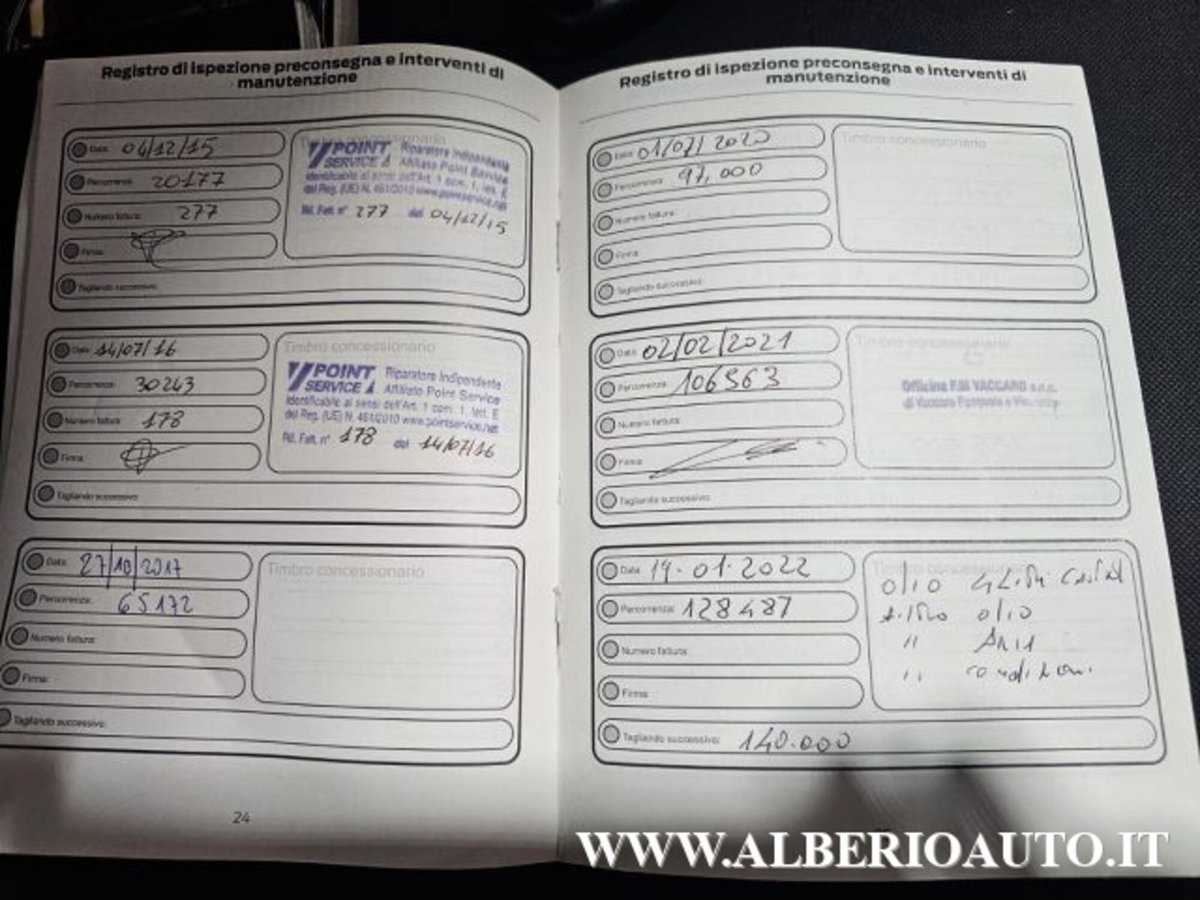 Registro di ispezione preconsegna e interventi di
manutenzione
Data: 04/12/15
Percorrenza: 20177
Numero fattura: 277
Firma:
Tagliando successivo:
Timbro concessionario
POINT SERVICE
Riparatore Indipendente
Affiliato Point Service
Identificabile ai sensi dell'Art. 1 com. 1, lett. E
del Reg. (UE) N. 461/2010 www.pointservice.net
Rif. Fatt. n° 277 del 04/12/15
Data: 14/07/16
Percorrenza: 30243
Numero fattura: 178
Firma:
Tagliando successivo:
Timbro concessionario
POINT SERVICE
Riparatore Indipendente
Affiliato Point Service
Identificabile ai sensi dell'Art. 1 com. 1, lett. E
del Reg. (UE) N. 461/2010 www.pointservice.net
Rif. Fatt. n° 178 del 14/07/16
Data: 27/10/2017
Percorrenza: 65172
Numero fattura:
Firma:
Tagliando successivo:
Timbro concessionario
24
Registro di ispezione preconsegna e interventi di
manutenzione
Data: 01/07/2020
Percorrenza: 97,000
Numero fattura:
Firma:
Tagliando successivo:
Timbro concessionario
Data: 02/02/2021
Percorrenza: 106563
Numero fattura:
Firma:
Tagliando successivo:
Timbro concessionario
Officina F.lli VACCARO s.n.c.
di Vaccaro Pasquale e
Data: 19.01.2022
Percorrenza: 128487
Numero fattura:
Firma:
Tagliando successivo: 140.000
Timbro concessionario
olio 4 Litri
olio
" Aria
"
WWW.ALBERIOAUTO.IT